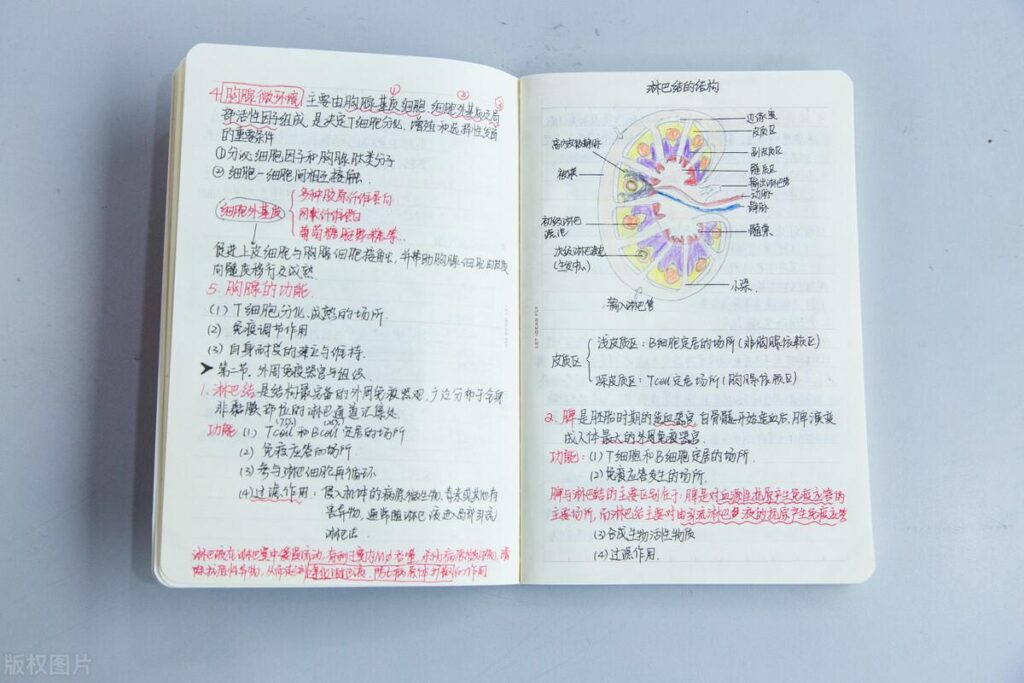 4. 胸腺微环境 主要由胸腺基质细胞、细胞外基质及局 ① ② ③
部活性因子组成,是决定T细胞分化、增殖和选择性发育
的重要条件
①分泌细胞因子和胸腺肽类分子
②细胞-细胞间相互接触.
细胞外基质
多种胶原纤维蛋白
网状纤维蛋白
葡萄糖胺聚糖等.
促进上皮细胞与胸腺细胞接触,并帮助胸腺细胞由皮质
向髓质移行及成熟.
5. 胸腺的功能.
(1) T细胞分化、成熟的场所.
(2) 免疫调节作用
(3) 自身耐受的建立与维持.
➤ 第二节. 外周免疫器官与组织.
1. 淋巴结 是结构最完备的外周免疫器官,广泛分布于全身
非黏膜部位的淋巴通道汇集处
(75%) (25%)
功能: (1) Tcell和Bcell定居的场所
(2) 免疫应答的场所
(3) 参与淋巴细胞再循环
(4) 过滤作用: 侵入机体的病原微生物、毒素或其他有
害异物,通常随淋巴液进入局部引流
淋巴结.
淋巴液在淋巴窦中缓慢流动,有利于窦内Mφ吞噬、
除抗原性异物,从而起到净化淋巴液,防止病原体扩散的作用
淋巴结的结构
边缘窦
皮质区
副皮质区
髓质区
输出淋巴管
动脉
静脉
髓窦
小梁
高内皮微静脉
被膜
初级淋巴
滤泡
次级淋巴滤泡
(生发中心)
输入淋巴管
皮质区
浅皮质区: B细胞定居的场所(非胸腺依赖区)
深皮质区: Tcell定居场所(胸腺依赖区)
2. 脾 是胚胎时期的造血器官,自骨髓开始造血后,脾演变
成人体最大的外周免疫器官.
功能: (1) T细胞和B细胞定居的场所.
(2) 免疫应答发生的场所.
脾与淋巴结的主要区别在于: 脾是对血源性抗原产生免疫应答的
主要场所,而淋巴结主要对由引流淋巴液的抗原产生免疫应答
(3) 合成生物活性物质
(4) 过滤作用.
版权图片